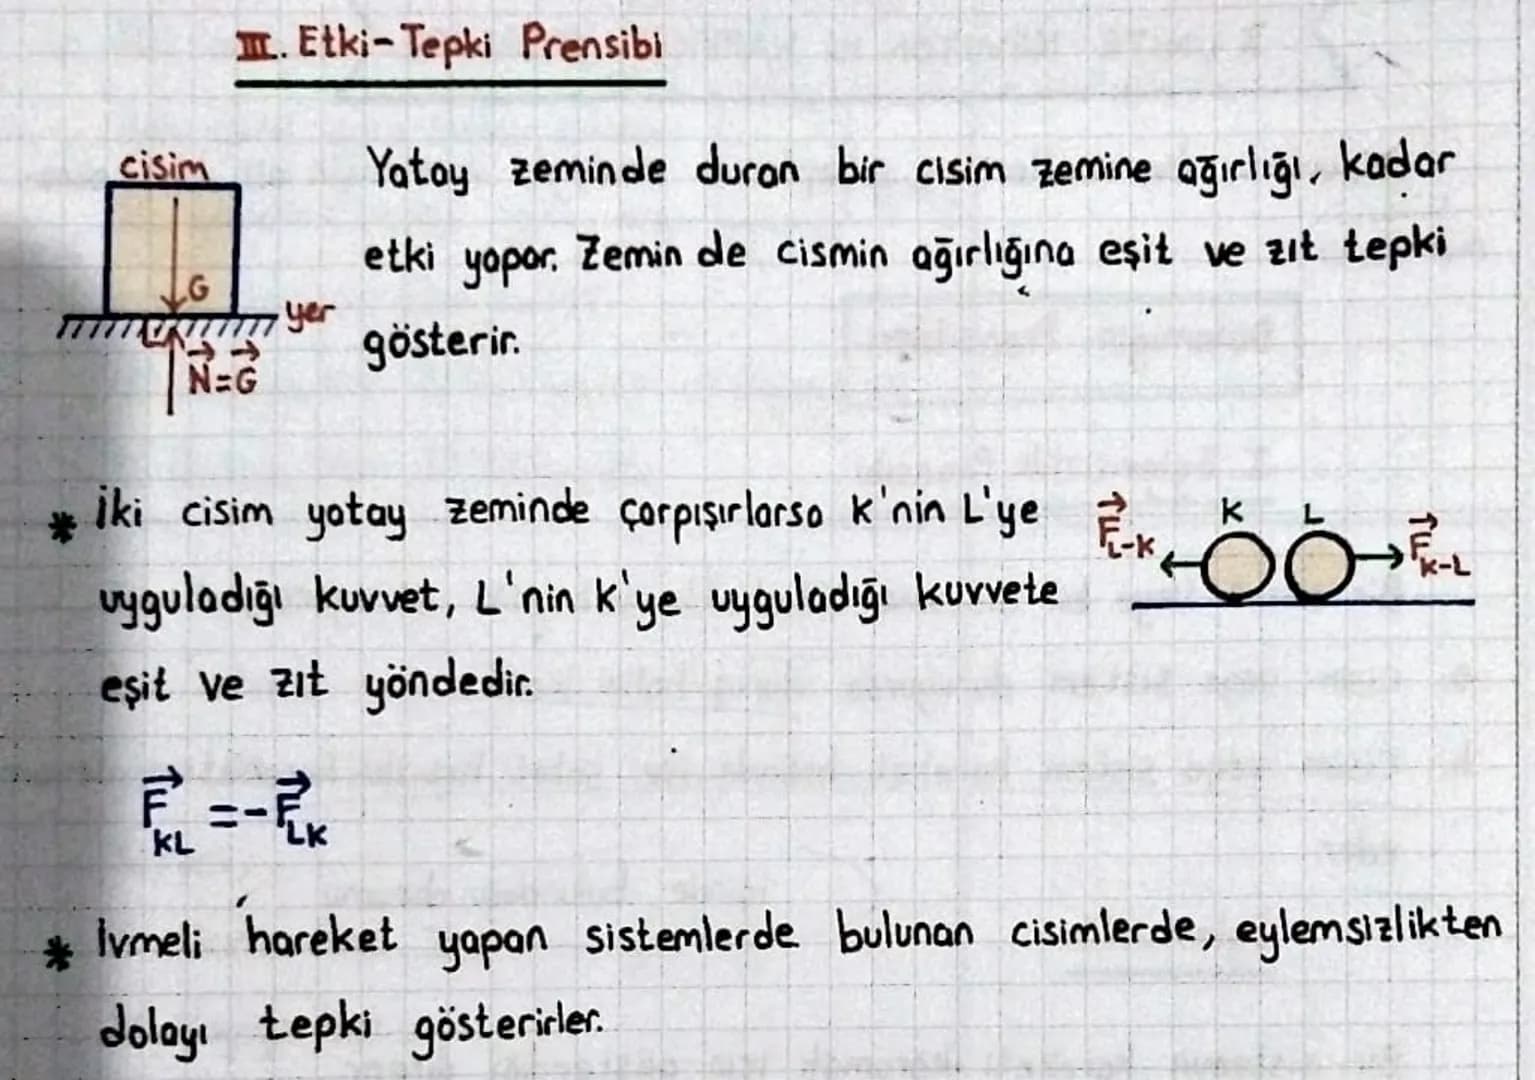 III. Etki-Tepki Prensibi
cisim
Yatay zeminde duran bir cisim zemine ağırlığı, kadar
etki yapar. Zemin de cismin ağırlığına eşit ve zıt tepki
G
yer
gösterir.
N=G
* İki cisim yatay zeminde çarpışırlarsa K'nin L'ye
K L
F L-K
F K-L
uyguladığı kuvvet, L'nin K'ye uyguladığı kuvvete
eşit ve zıt yöndedir.
F KL = -F LK
* İvmeli hareket yapan sistemlerde bulunan cisimlerde, eylemsizlikten
dolayı tepki gösterirler.